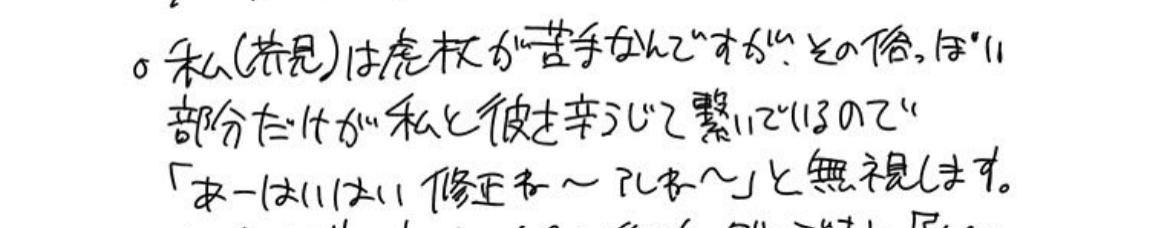 ○ 私(芥見)は虎杖が苦手なんですが、その俗っぽい
部分だけが私と彼を辛うじて繋いでいるので
「あーはいはい修正ね〜アレね〜」と無視します。